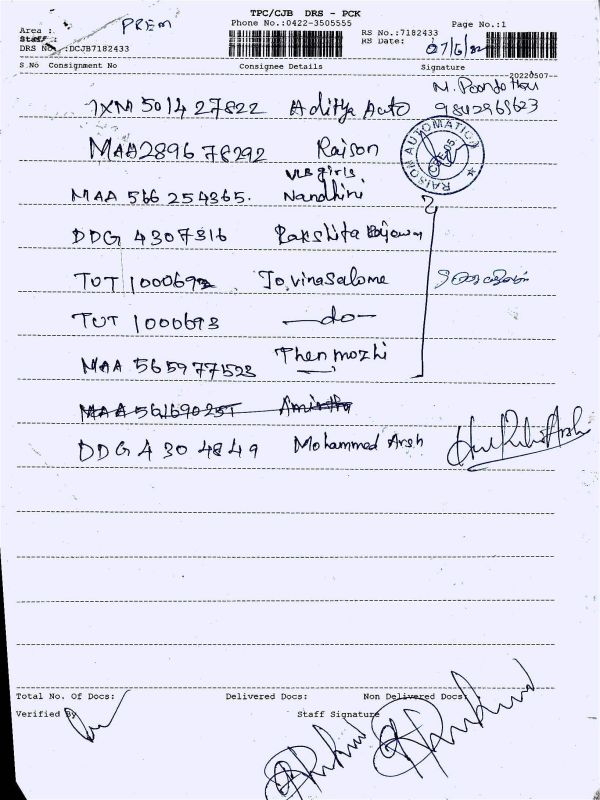 TPC/CJB DRS - PCK
Phone No.:0422-3505555
Page No.:1
Area :
PREM
Staff :
RS No.:7182433
RS Date: 07/6/22
DRS No.:DCJB7182433
S.No Consignment No Consignee Details Signature
20220507
1XM 501427822 Aditya Auto 9842969623
MAA289678292 Raison
RAISON AUTOMATION
CBE-05
VLB girls
MAA 566 254365. Nandhini
DDG 4307316 Rakshita
TUT 1000692 Jo.vinasalome
TUT 1000693 —do—
MAA 565977523 Thenmozhi
MAA 56169025 Amirtha
DDG 4304849 Mohammed Arsh
Total No. Of Docs: Delivered Docs: Non Delivered Docs:
Verified By Staff Signature